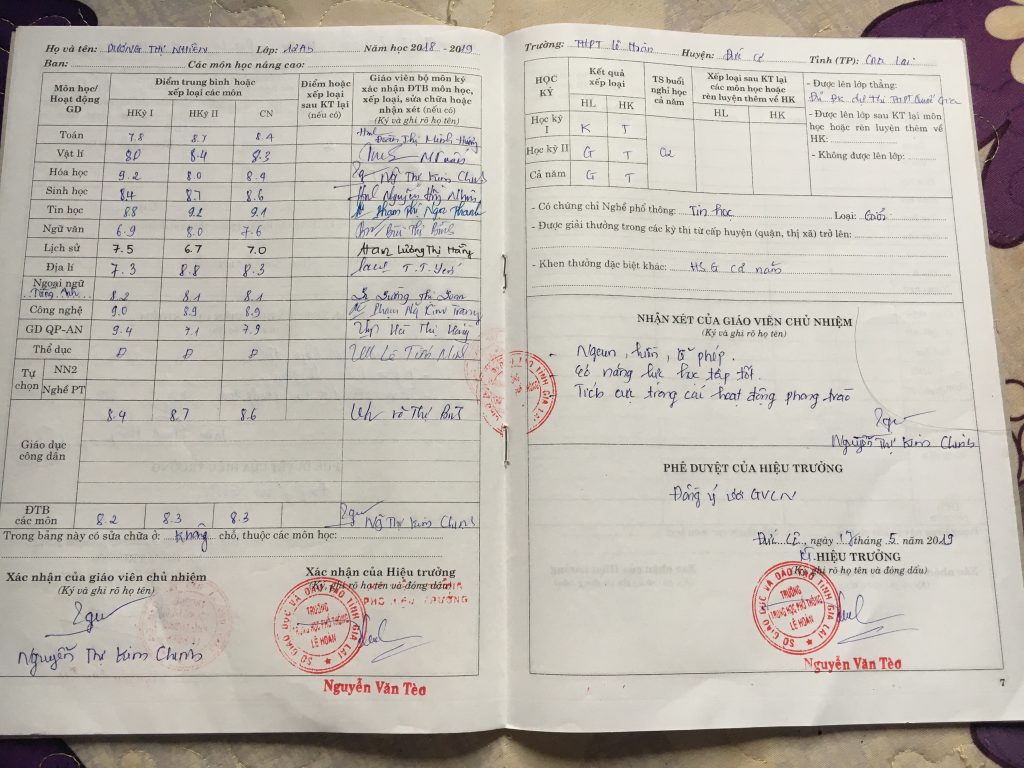 Họ và tên: DƯƠNG THỊ NHIÊN Lớp: 12A5 Năm học 2018 - 2019
Ban: Các môn học nâng cao:
Môn học/ Hoạt động GD
Điểm trung bình hoặc xếp loại các môn
HKỳ I HKỳ II CN
Điểm hoặc xếp loại sau KT lại (nếu có)
Giáo viên bộ môn ký xác nhận ĐTB môn học, xếp loại, sửa chữa hoặc nhận xét (nếu có)
(Ký và ghi rõ họ tên)
Toán 7.8 8.7 8.4 Thị Minh
Vật lí 8.0 8.4 8.3
Hóa học 9.2 8.0 8.4 Ng Thị Kim Chinh
Sinh học 8.4 8.7 8.6 Nguyễn
Tin học 8.8 9.2 9.1 Phạm Thị Nga Thanh
Ngữ văn 6.9 8.0 7.6 Bùi Thị Bình
Lịch sử 7.5 6.7 7.0 Lương Thị Hằng
Địa lí 7.3 8.8 8.3 T.T.Yến
Ngoại ngữ
Tiếng Anh 8.2 8.1 8.1
Công nghệ 9.0 8.9 8.9 Phạm Ng Kim
GD QP-AN 9.4 7.1 7.9 Thị Hằng
Thể dục Đ Đ Đ
Tự chọn
NN2
Nghề PT
Giáo dục công dân 8.4 8.7 8.6
ĐTB các môn 8.2 8.3 8.3 Ng Thị Kim Chinh
Trong bảng này có sửa chữa ở: Không chỗ, thuộc các môn học:
Xác nhận của giáo viên chủ nhiệm
(Ký và ghi rõ họ tên)
Nguyễn Thị Kim Chinh
Xác nhận của Hiệu trưởng
(Ký, ghi rõ họ tên và đóng dấu)
PHÓ HIỆU TRƯỞNG
SỞ GIÁO DỤC VÀ ĐÀO TẠO TỈNH GIA LAI
TRƯỜNG
TRUNG HỌC PHỔ THÔNG
LÊ HOÀN
Nguyễn Văn Tèo
Trường: THPT Lê Hoàn Huyện: Đức Cơ Tỉnh (TP): Gia Lai
HỌC KỲ
Kết quả xếp loại
HL HK
TS buổi nghỉ học cả năm
Xếp loại sau KT lại các môn học hoặc rèn luyện thêm về HK
HL HK
Học kỳ I K T
Học kỳ II G T 02
Cả năm G T
- Được lên lớp thẳng:
Đủ ĐK dự thi THPT Quốc Gia
- Được lên lớp sau KT lại môn học hoặc rèn luyện thêm về HK:
- Không được lên lớp:
- Có chứng chỉ Nghề phổ thông: Tin học Loại: Giỏi
- Được giải thưởng trong các kỳ thi từ cấp huyện (quận, thị xã) trở lên:
- Khen thưởng đặc biệt khác: HSG cả năm
NHẬN XÉT CỦA GIÁO VIÊN CHỦ NHIỆM
(Ký và ghi rõ họ tên)
- Ngoan, hiền, lễ phép.
- Có năng lực học tập tốt.
- Tích cực trong các hoạt động phong trào
Nguyễn Thị Kim Chinh
PHÊ DUYỆT CỦA HIỆU TRƯỞNG
Đồng ý với GVCN
Đức Cơ, ngày 17 tháng 5 năm 2019
KT. HIỆU TRƯỞNG
(Ký, ghi rõ họ tên và đóng dấu)
SỞ GIÁO DỤC VÀ ĐÀO TẠO TỈNH GIA LAI
TRƯỜNG
TRUNG HỌC PHỔ THÔNG
LÊ HOÀN
Nguyễn Văn Tèo
7